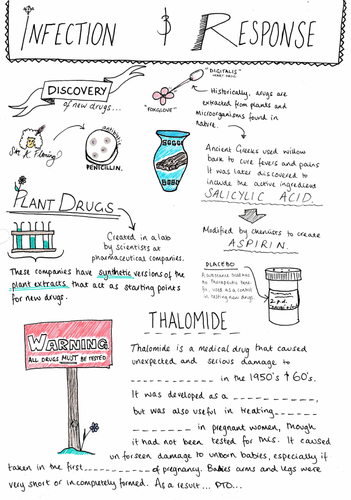 INFECTION & RESPONSE
DISCOVERY
of new drugs...
"DIGITALIS"
HEART DRUG
"FOXGLOVE"
Historically, drugs are
extracted from plants and
microorganisms found in
nature.
Sir A Fleming
antibiotic
PENICILLIN.
Ancient Greeks used willow
bark to cure fevers and pains
It was later discovered to
include the active ingredient
SALICYLIC ACID.
Modified by chemists to create
ASPIRIN.
PLANT DRUGS
Created in a lab
by scientists at
pharmaceutical companies.
These companies have synthetic versions of the
plant extracts that act as starting points
for new drugs.
PLACEBO
A substance that has
no therapeutic
used as a control
in testing new drugs.
THALOMIDE
WARNING
ALL DRUGS MUST BE TESTED
Thalomide is a medical drug that caused
unexpected and serious damage to
_ _ _ _ _ _ _ _ _ _ in the 1950's & 60's.
It was developed as a _ _ _ _ _ _ _ _ _,
but was also useful in treating _ _ _ _ _
_ _ _ _ _ _ _ in pregnant women, though
it had not been tested for this. It caused
unforseen damage to unborn babies, especially if
taken in the first _ _ _ _ _ _ _ _ of pregnancy. Babies arms and legs were
very short or incompletely formed. As a result... PTO...